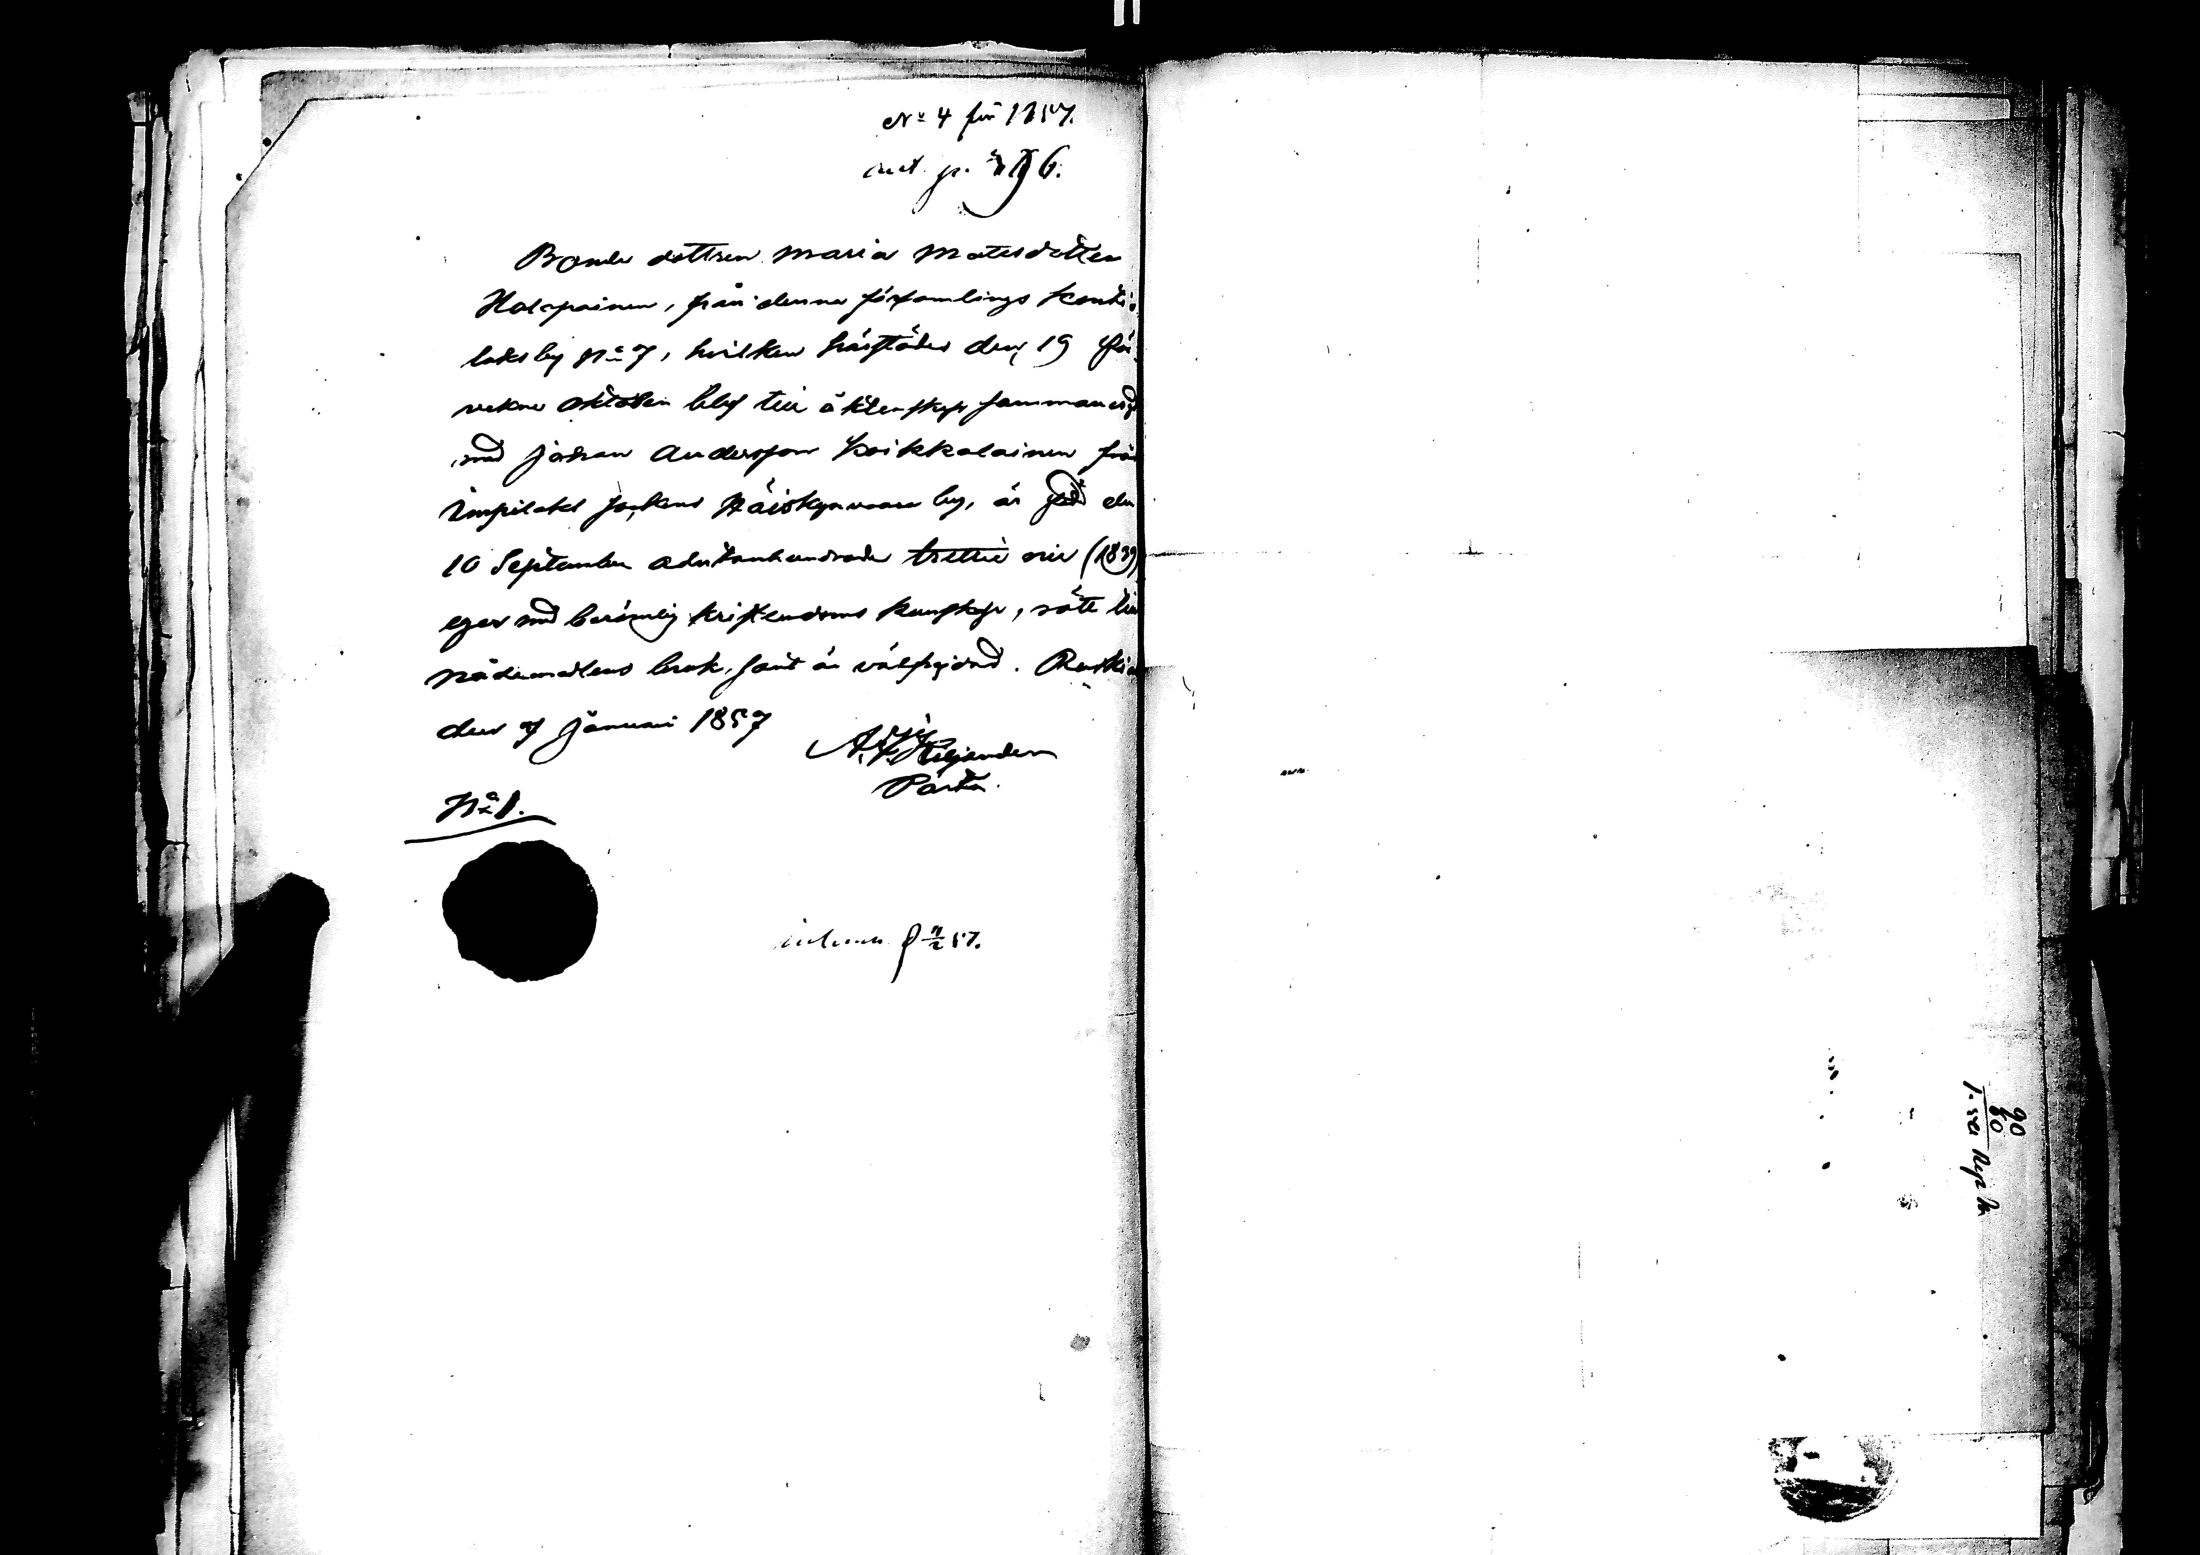 No 4 för 1857.
int. p. 196.
Bonde dottren Maria Matesdotter
Holopainen, från denna församlings Konti-
laks by No 7, hvilken härstädes den 19 för-
vekne Oktober blef till äktenskap sammanvigd
med Johan Andersson Koikkalainen från
Impilaks sockens Näiskynvaara by, är född den
10 September adertonhundrade trettie nie (1839)
eger med berömlig kristendoms kunskap, rätt till
nådemedlens bruk, samt är välfrejdad. Ruskiala
den 7 Januari 1857
A. J. Hiljander
Pastor.
No 1.
57.
90
60